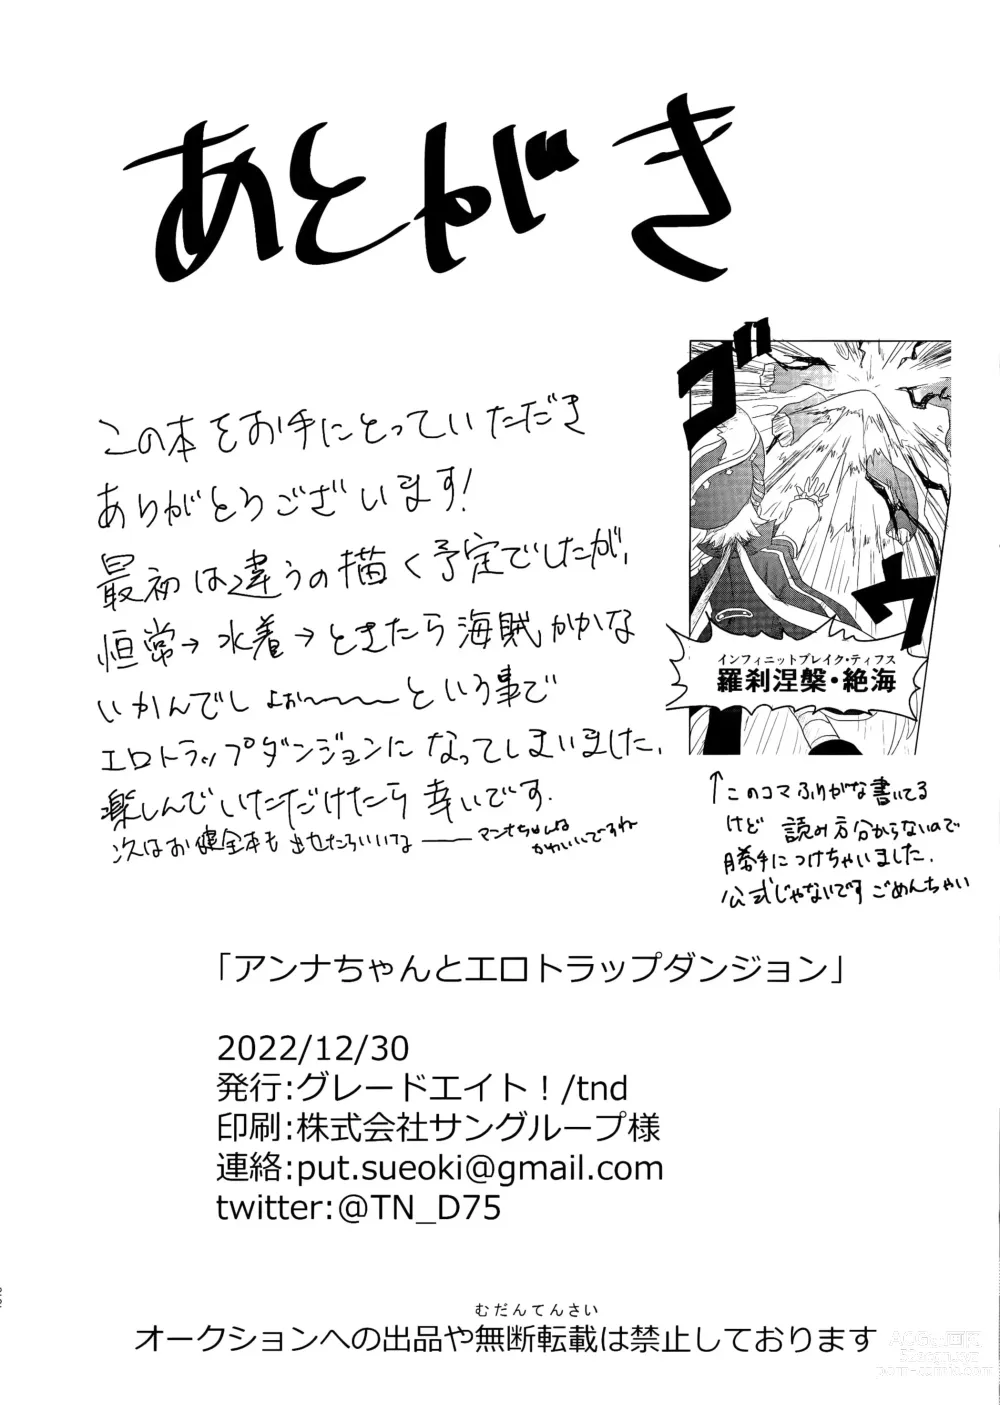 あとがき
この本をお手にとっていただき
ありがとうございます!
最初は違うの描く予定でしたが、
恒常→水着→ときたら海賊かかな
いかんでしょぉ〜〜〜という事で
エロトラップダンジョンになってしまいました、
楽しんでいただけたら幸いです.
次はお健全本も出せたらいいな――マンナちゃんは
かわいいですね
ゴ
ウ
インフィニットブレイク・ティフス
羅刹涅槃・絶海
↑このコマふりがな書いてる
けど 読み方分からないので
勝手につけちゃいました.
公式じゃないです ごめんちゃい
「アンナちゃんとエロトラップダンジョン」
2022/12/30
発行:グレードエイト！/tnd
印刷:株式会社サングループ様
連絡:put.sueoki@gmail.com
twitter:@TN_D75
むだんてんさい
オークションへの出品や無断転載は禁止しております